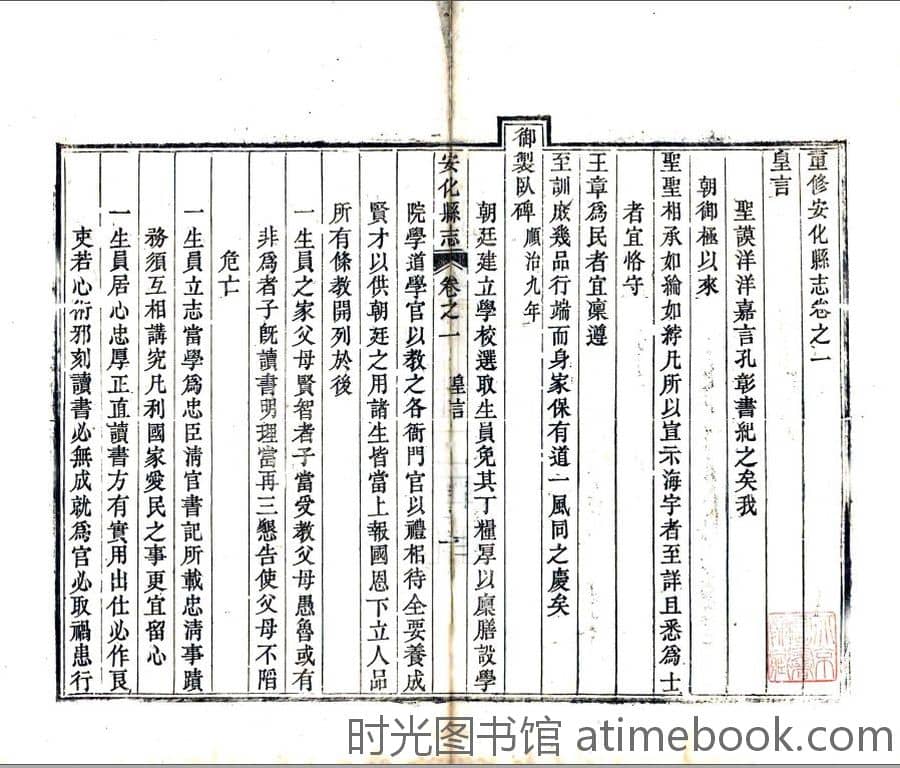 重修安化縣志卷之一
皇言
聖謨洋洋嘉言孔彰書紀之矣我
朝御極以來
聖聖相承如綸如綍凡所以宣示海宇者至詳且悉為士
者宜恪守
王章為民者宜凜遵
至訓庶幾品行端而身家保有道一風同之慶矣
御製臥碑順治九年
朝廷建立學校選取生員免其丁糧厚以廩膳設學
安化縣志 卷之一 皇言 一
院學道學官以教之各衙門官以禮相待全要養成
賢才以供朝廷之用諸生皆當上報國恩下立人品
所有條教開列於後
一生員之家父母賢智者子當受教父母愚魯或有
非為者子旣讀書明理當再三懇告使父母不陷
危亡
一生員立志當學為忠臣淸官書記所載忠淸事蹟
務須互相講究凡利國家愛民之事更宜留心
一生員居心忠厚正直讀書方有實用出仕必作良
吏若心術邪刻讀書必無成就為官必取禍患行
时光图书馆 atimebook.com